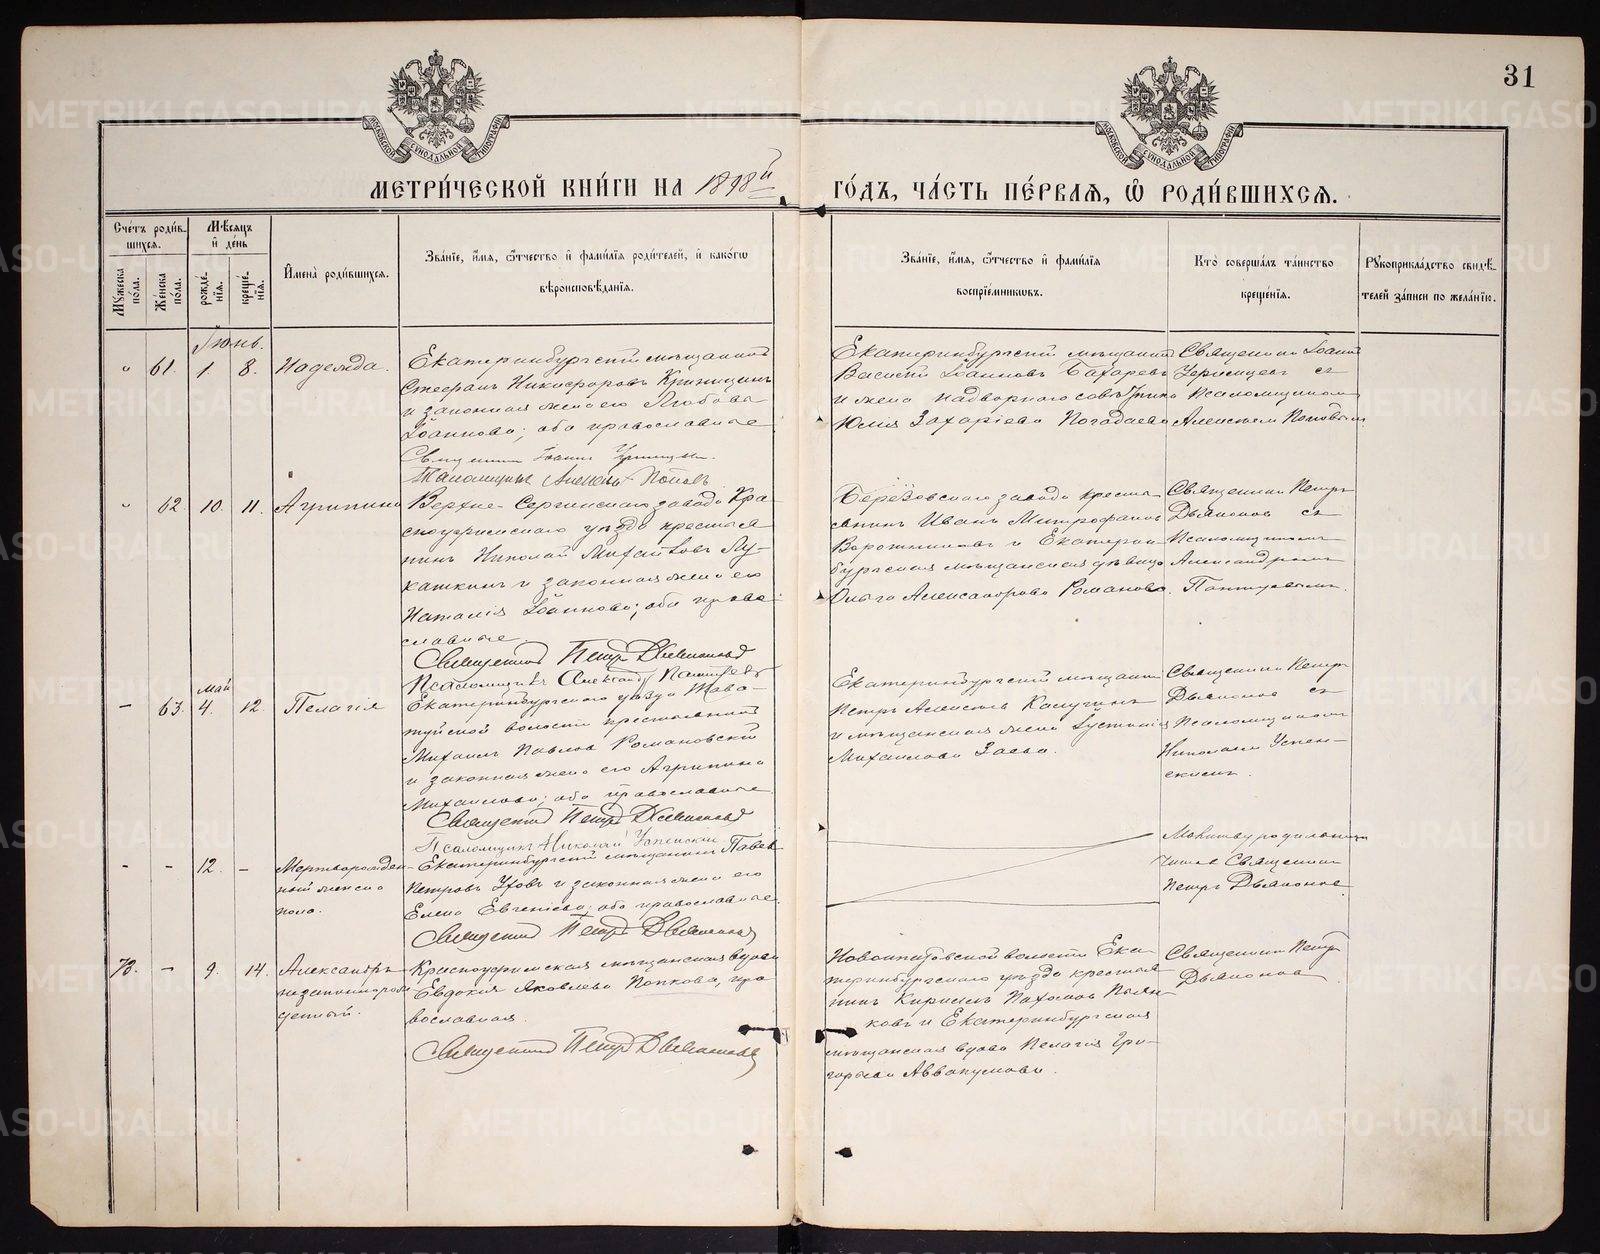 31
МОСКОВСКОЙ СѴНОДАЛЬНОЙ ТИПОГРАФІИ
МОСКОВСКОЙ СѴНОДАЛЬНОЙ ТИПОГРАФІИ
МЕТРИ́ЧЕСКОЙ КНИ́ГИ НА 1898й ГО́ДЪ, ЧА́СТЬ ПЕ́РВАЯ, Ѡ РОДИ́ВШИХСЯ.
Сче́тъ роди́вшихся.
Му́жеска по́ла.
Же́нска по́ла.
Мѣ́сяцъ и де́нь
рожде́нїя.
креще́нїя.
Имена̀ роди́вшихся.
Зва́нїе, и́мя, ѻ́тчество и фами́лїя роди́телей, и како́гѡ вѣроисповѣ́данїя.
Зва́нїе, и́мя, ѻ́тчество и фами́лїя воспрїе́мникѡвъ.
Кто̀ соверша́лъ та́инство креще́нїя.
Рꙋкоприкла́дство свидѣ́телей за́писи по жела́нїю.
Іюнь.
" 61. 1. 8. Надежда.
Екатеринбургскій мѣщанинъ
Стефанъ Никифоровъ
и законная жена его Любовь
Іоаннова; оба православные
Священникъ Іоаннъ
Псаломщикъ Алексѣй Поповъ
Екатеринбургскій мѣщанинъ
Василій Іоанновъ Бахаревъ
и жена надворного совѣтника
Юлія Захаріева Погадаева
Священникъ Іоаннъ
съ
Псаломщикомъ
Алексѣемъ Поповымъ
" 62 10. 11. Агрипина
Верхне-Сергинскаго завода Кра
сноуфимскаго уѣзда крестья
нинъ Николай Михайловъ Лу-
каткинъ и законная жена его
Наталія Іоаннова; оба право
славные.
Священникъ Петръ Дьяконовъ
Псаломщикъ Александръ
Березовскаго завода кресть-
янинъ Иванъ Митрофановъ
Воротниковъ и Екатерин-
бургская мѣщанская дѣвица
Ольга Александрова Романова.
Священникъ Петръ
Дьяконовъ съ
Псаломщикомъ
Александромъ
май
- 63. 4. 12. Пелагія
Екатеринбургскаго уѣзда Шава-
туйской волости крестьянинъ
Михаилъ Павловъ Романовскій
и законная жена его Агрипина
Михаилова; оба православные.
Священникъ Петръ Дьяконовъ
Псаломщикъ Николай Успенскій
Екатеринбургскій мѣщанинъ
Петръ Алексѣевъ Калугинъ
и мѣщанская жена Іустинія
Михаилова Заева.
Священникъ Петръ
Дьяконовъ съ
Псаломщикомъ
Николаемъ Успен-
скимъ.
- - 12. - Мертворожден-
ный женска
пола.
Екатеринбургскій мѣщанинъ Павелъ
Петровъ и законная жена его
Елена Евгеніева; оба православные.
Священникъ Петръ Дьяконовъ
Молитву родильницѣ
читалъ Священникъ
Петръ Дьяконовъ.
73. - 9. 14. Александръ
незаконнорож
денный.
Красноуфимская мѣщанская вдова
Евдокія Яковлева Попкова, пра
вославная.
Священникъ Петръ Дьяконовъ
Новоипатовской волости Ека-
теринбургскаго уѣзда крестья
нинъ Кириллъ Пахомовъ Пьян
ковъ и Екатеринбургская
мѣщанская вдова Пелагія Гри-
горьева Аввакумова.
Священникъ Петръ
Дьяконовъ
METRIKI.GASO-URAL.RU